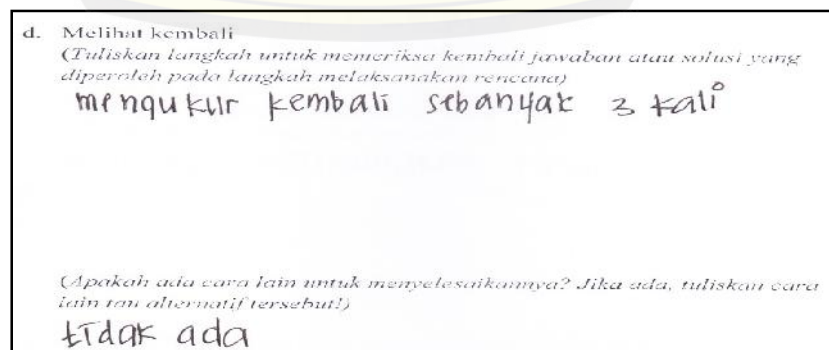 d. Melihat kembali
(Tuliskan langkah untuk memeriksa kembali jawaban atau solusi yang
diperoleh pada langkah melaksanakan rencana)
mengukur kembali sebanyak 3 kali
(Apakah ada cara lain untuk menyelesaikannya? Jika ada, tuliskan cara
lain tau alternatif tersebut!)
tidak ada